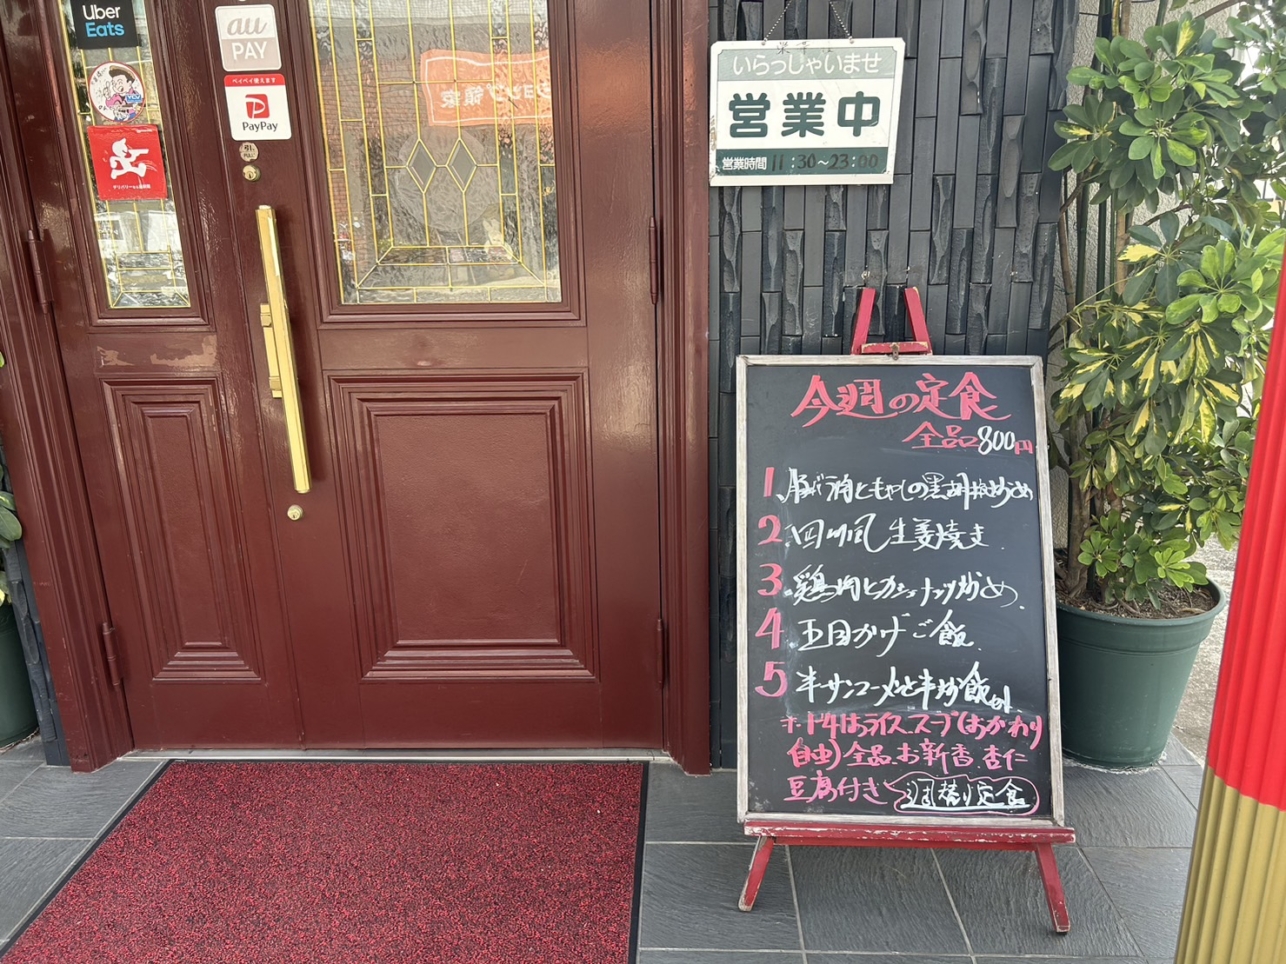 Uber
Eats
au
PAY
ペイペイ使えます
PayPay
引
PULL
いらっしゃいませ
営業中
営業時間 11:30~23:00
今週の定食
全品800円
1.豚バラ肉ともやしの黒胡椒炒め
2.四川風生姜焼き
3.鶏肉とカシューナッツ炒め
4.五目かけご飯
5.半サンラーメンと半炒飯
ライス.スープ(おかわり
自由)全品.お新香.杏仁
豆腐付き 週替り定食